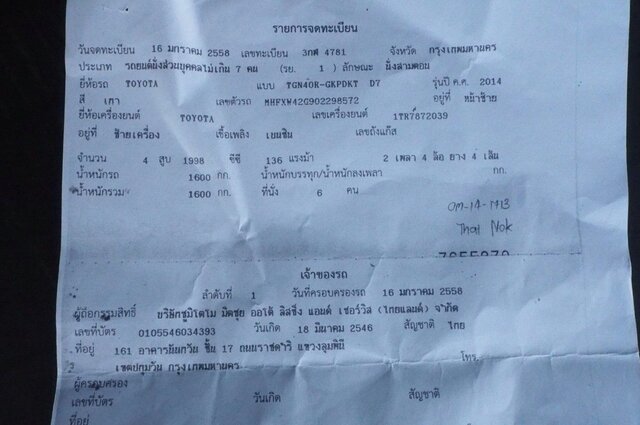 รายการจดทะเบียน
วันจดทะเบียน 16 มกราคม 2558 เลขทะเบียน 3กศ 4781 จังหวัด กรุงเทพมหานคร
ประเภท รถยนต์นั่งส่วนบุคคลไม่เกิน 7 คน (รย. 1 ) ลักษณะ นั่งสามตอน
ยี่ห้อรถ TOYOTA แบบ TGN40R-GKPDKT D7 รุ่นปี ค.ศ. 2014
สี เทา เลขตัวรถ MHFXW42G902298572 อยู่ที่ หน้าซ้าย
ยี่ห้อเครื่องยนต์ TOYOTA เลขเครื่องยนต์ 1TR7872039
อยู่ที่ ซ้ายเครื่อง เชื้อเพลิง เบนซิน เลขถังแก๊ส
จำนวน 4 สูบ 1998 ซีซี 136 แรงม้า 2 เพลา 4 ล้อ ยาง 4 เส้น
น้ำหนักรถ 1600 กก. น้ำหนักบรรทุก/น้ำหนักลงเพลา กก.
น้ำหนักรวม 1600 กก. ที่นั่ง 6 คน
Thai Nok
เจ้าของรถ
ลำดับที่ 1 วันที่ครอบครองรถ 16 มกราคม 2558
ผู้ถือกรรมสิทธิ์ บริษัทซูมิโตโม มิตซุย ออโต้ ลิสซิ่ง แอนด์ เซอร์วิส (ไทยแลนด์) จำกัด
เลขที่บัตร 0105546034393 วันเกิด 18 มีนาคม 2546 สัญชาติ ไทย
ที่อยู่ 161 อาคารนันทวัน ชั้น 17 ถนนราชดำริ แขวงลุมพินี
เขตปทุมวัน กรุงเทพมหานคร โทร.
ผู้ครอบครอง
เลขที่บัตร วันเกิด สัญชาติ
ที่อยู่